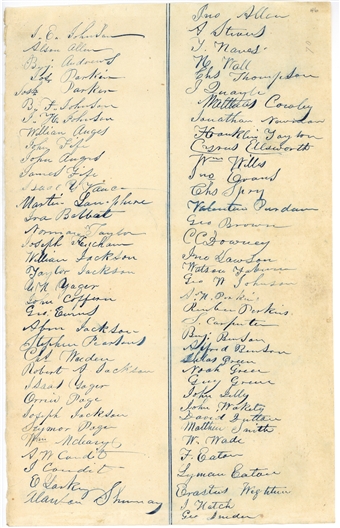 J. E. Johnson
Alson Allen
Benj Andrews
Parker
Josh Parker
B. F. Johnson
J. H. Johnson
William Anges
John Fife
John Anges
James Fife
Isaac Y Vance
Martin Lanphere
Ira Bobbat
Norman Taylor
Joseph
William Jackson
Taylor Jackson
A. K Yager
John Coffeen
Geo. Evens
Afm Jackson
Stephen Pearsons
Cal Warden
Robert A Jackson
Isaac Yager
Orrin Page
Joseph Jackson
Seymor Page
Wm
A W Condit
I Condit
O Larkin
Alanson
Jno Allen
A Stevens
T. Naves
M Wall
Chs Thompson
J Quayle
Matthias Cowley
Jonathan Newman
Franklin Taylor
Cyrus Ellsworth
Wm Wills
Jno Evans
Chs Spry
Valentin Purdam
Geo Brown
C C Downey
Jno Lawson
Watson Taborne
Geo W Johnson
J. N. Perkins
Reuben Perkins
S. Carpenter
Benj Benson
Alfred Benson
Silas Green
Noah Green
Guy Green
John Lilly
John Wakely
David Gutten
Matthew Smith
W. Wade
F. Eaton
Lyman Eaton
Erastus Wightman
J Hatch
Geo Snider